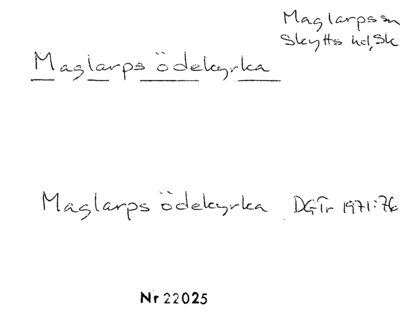 Maglarps sn
Skytts hd, Sk
Maglarps ödekyrka
Maglarps ödekyrka DGTr 1971:76
Nr 22025